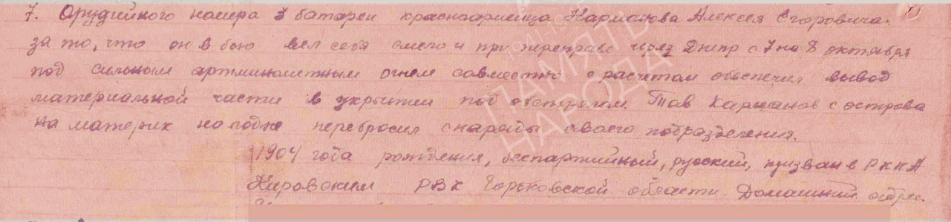 7. Орудийного номера 3 батареи красноармейца Карманова Алексея Егоровича.
за то, что он в бою вел себя смело и при переправе через Днепр с 7 на 8 октября
под сильным артминометным огнем совместно с расчетом обеспечил вывод
материальной части в укрытии под обстрелом. Тов Карманов с острова
на материк на лодке перебросил снаряды своего подразделения.
1904 года рождения, беспартийный, русский, призван в РККА
Кировским РВК Горьковской области. Домашний адрес
ПАМЯТЬ
НАРОДА